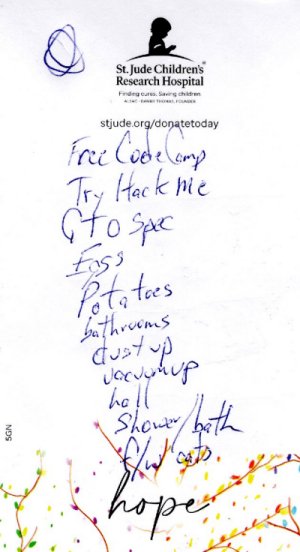 St. Jude Children's
Research Hospital
Finding cures. Saving children.
ALSAC • DANNY THOMAS, FOUNDER
stjude.org/donatetoday
Free Code Camp
Try Hack Me
G to Spec
Eggs
Potatoes
bathrooms
dust up
vacuum up
hall
shower/bath
f/w cats
5GN
hope